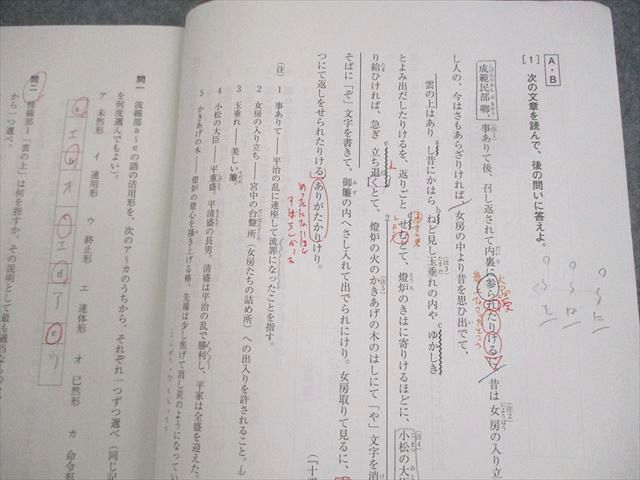 A・B
[1] 次の文章を読んで、後の問いに答えよ。
成範民部卿、事ありて後、召し返されて内裏に参られたりけるに、昔は女房の入り立ち
し人の、今はさもあらざりければ、女房の中より昔を思ひ出でて、
雲の上はありし昔にかはらねど見し玉垂れの内やゆかしき
とよみ出だしたりけるを、返りごとせむとて、燈炉のきはに寄りけるほどに、小松の大臣
り給ひければ、急ぎ立ち退くとて、燈炉の火のかきあげの木のはしにて「や」文字を消
そばに「ぞ」文字を書きて、御簾の内へさし入れて出でられにけり。女房取りて見るに、
つにて返しをせられたりけるありがたかりけり。
(注)
1 事ありて――平治の乱に連座して流罪になったことを指す。
2 女房の入り立ち――宮中の台盤所(女房たちの詰め所)への出入りを許されること。
3 玉垂れ――美しい簾。
4 小松の大臣――平重盛。平清盛の長男。清盛は平治の乱で勝利し、平家は全盛を迎えた。
5 かきあげの木――燈炉の燈心を掻き上げる棒。先端は少し焦げて消し炭のようになってい
問一 波線部a～eの語の活用形を、次のア～カのうちから、それぞれ一つずつ選べ(同じ記
を何度選んでもよい)。
ア 未然形 イ 連用形 ウ 終止形 エ 連体形 オ 已然形 カ 命令形
a エ b オ c エ d ア e ウ
問二 傍線部1「雲の上」は何を指すか。その説明として最も適当なもの
から一つ選べ。